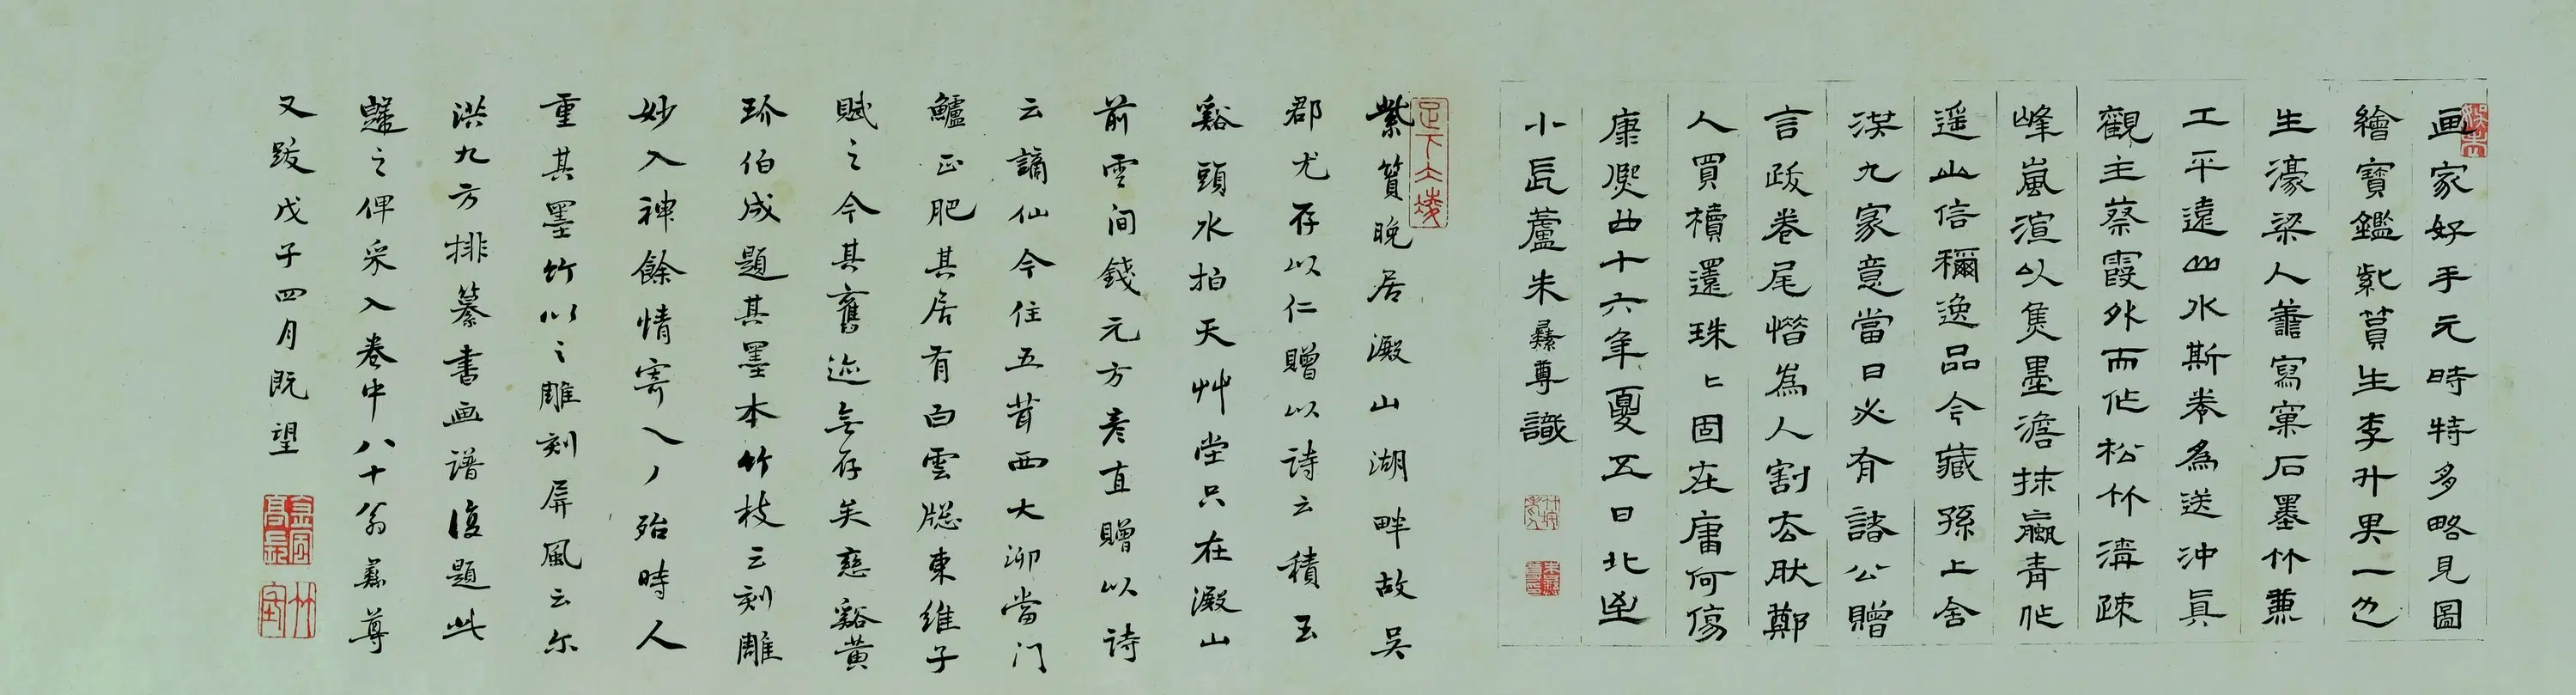 画家好手元時特多略見圖
繪寶鑑紫篔生李升果一也
生濠梁人善寫窠石墨竹兼
工平遠山水斯卷為送沖真
觀主蔡霞外而作松竹溝疎
峰嵐渲以焦墨澹抹嬴青作
遥山信稱逸品今藏孫上舍
淇九家意當日必有諸公贈
言跋卷尾惜為人割去肰鄭
人買櫝還珠上固在庸何傷
康熙四十六年夏五日北至
小長蘆朱彝尊識
足下大凌
紫篔晚居澱山湖畔故吴
郡尤存以仁贈以詩云積玉
谿頭水拍天艸堂只在澱山
前雲間錢元方彦直贈以詩
云謫仙今住五茸西大泖當门
鱸正肥其居有白雲牕東維子
賦之今其舊迹無存矣慈谿黄
玠伯成題其墨本竹枝云刻雕
妙入神餘情寄八丿殆時人
重其墨竹以之雕刻屏風云尔
洪九方排纂書画谱復題此
歸之俾采入卷中八十翁彝尊
又跋戊子四月既望